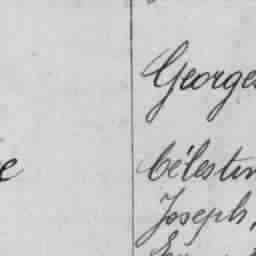 Georges
Célestin
Joseph,